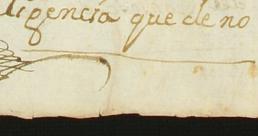 digencia que de no